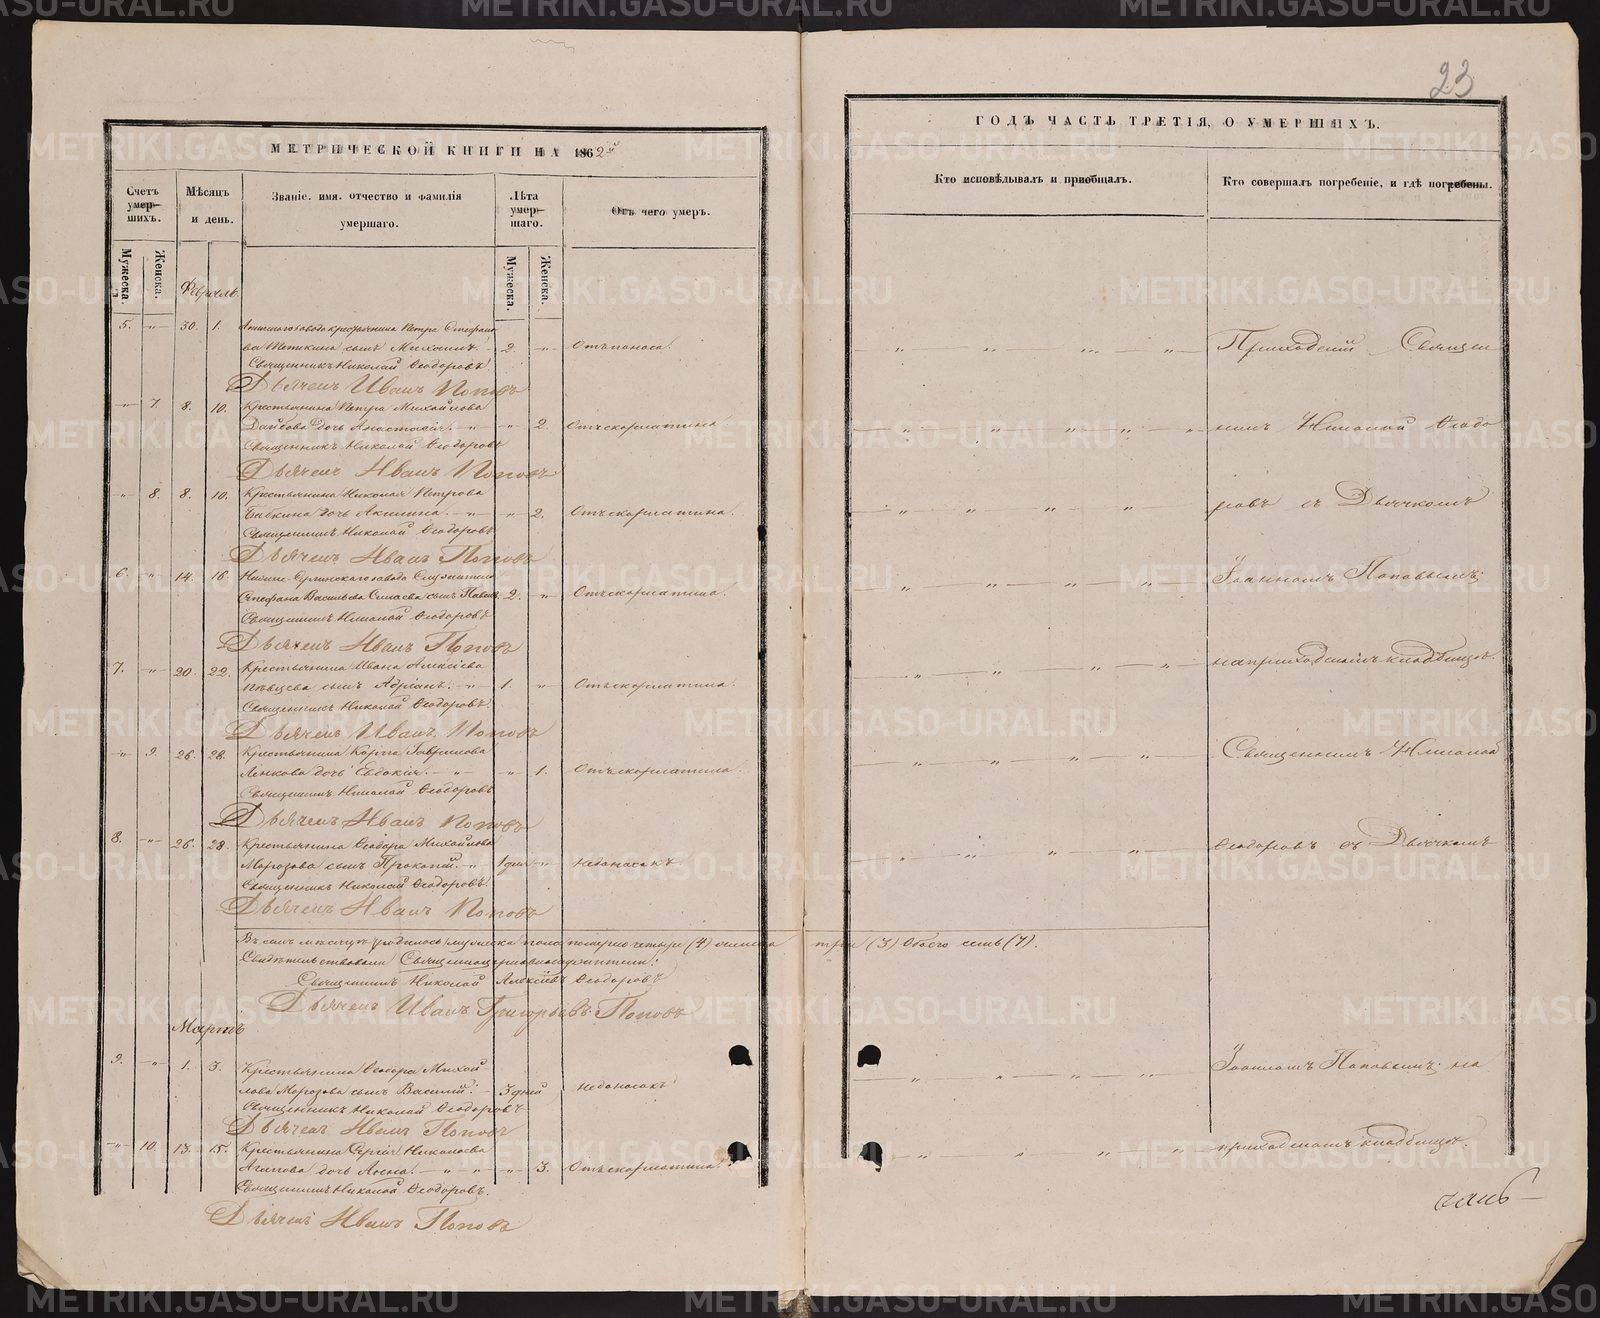 МЕТРИЧЕСКОЙ КНИГИ НА 1862й
Счетъ умер- шихъ.
Мѣсяцъ и день.
Званіе. имя. отчество и фамилія умершаго.
Лѣта умер- шаго.
Отъ чего умеръ.
Мужеска.
Женска.
Мужеска.
Женска.
Февраль.
5. „ 30. 1. крестьянина Петра Стефано
ва сынъ Михаилъ. 2. „ Отъ поноса.
Священникъ Николай Ѳеодоровъ.
Дьячекъ Иванъ Поповъ
„ 7. 8. 10. Крестьянина Петра Михайлова
дочь Анастасія. „ „ 2. Отъ скорлатина
Священникъ Николай Ѳеодоровъ
Дьячекъ Иванъ Поповъ
„ 8. 8. 10. Крестьянина Николая Петрова
Бабкина дочь Акилина. „ „ 2. Отъ скорлатина.
Священникъ Николай Ѳеодоровъ
Дьячекъ Иванъ Поповъ
6. „ 14. 16. завода
Стефана Васильева сынъ Павелъ. 2. „ Отъ скорлатина.
Священникъ Николай Ѳеодоровъ
Дьячекъ Иванъ Поповъ
7. „ 20. 22. Крестьянина Ивана Алексѣева
Пѣвцева сынъ Адріанъ. „ 1. „ Отъ скорлатина.
Священникъ Николай Ѳеодоровъ.
Дьячекъ Иванъ Поповъ
„ 9. 26. 28. Крестьянина Карпа Гаврилова
дочь Евдокія. „ „ 1. Отъ скорлатина.
Священникъ Николай Ѳеодоровъ
Дьячекъ Иванъ Поповъ
8. „ 26. 28. Крестьянина Ѳеодора Михайлова
Морозова сынъ Прокопій. „ 1 дня „ Недоносокъ
Священникъ Николай Ѳеодоровъ.
Дьячекъ Иванъ Поповъ
Въ семъ мѣсяцѣ мужеска пола померло четыре (4) женска три (3) Обоего семь (7).
Свидѣтельствовали
Священникъ Николай Алексіевъ Ѳеодоровъ
Дьячекъ Иванъ Григорьевъ Поповъ
Мартъ
9. „ 1. 3. Крестьянина Ѳеодора Михай
лова Морозова сынъ Василій. 3 дней Недоносокъ
Священникъ Николай Ѳеодоровъ
Дьячекъ Иванъ Поповъ
„ 10. 13. 15. Крестьянина Сергія Николаева
Агапова дочь Анна. „ „ „ 3. Отъ скорлатина.
Священникъ Николай Ѳеодоровъ.
Дьячекъ Иванъ Поповъ
23
ГОДЪ ЧАСТЬ ТРЕТІЯ, О УМЕРШИХЪ.
Кто исповѣдывалъ и пріобщалъ.
Кто совершалъ погребеніе, и гдѣ погребены.
Приходскій Священ
никъ Николай Ѳеодо
ровъ съ Дьячкомъ
Іоанномъ Поповымъ;
на приходскомъ кладбищѣ.
Священникъ Николай
Ѳеодоровъ съ Дьячкомъ
Іоанномъ Поповымъ; на
приходскомъ кладбищѣ.
METRIKI.GASO-URAL.RU